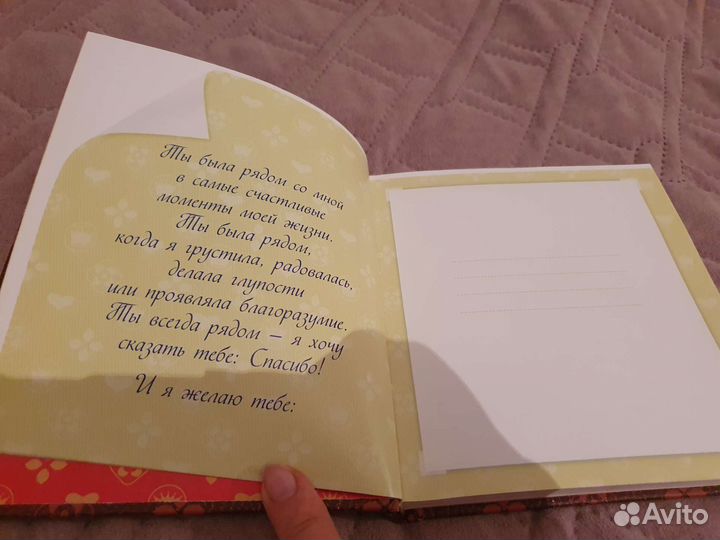 Ты была рядом со мной
в самые счастливые
моменты моей жизни.
Ты была рядом,
когда я грустила, радовалась,
делала глупости
или проявляла благоразумие.
Ты всегда рядом – я хочу
сказать тебе: Спасибо!
И я желаю тебе:
Avito